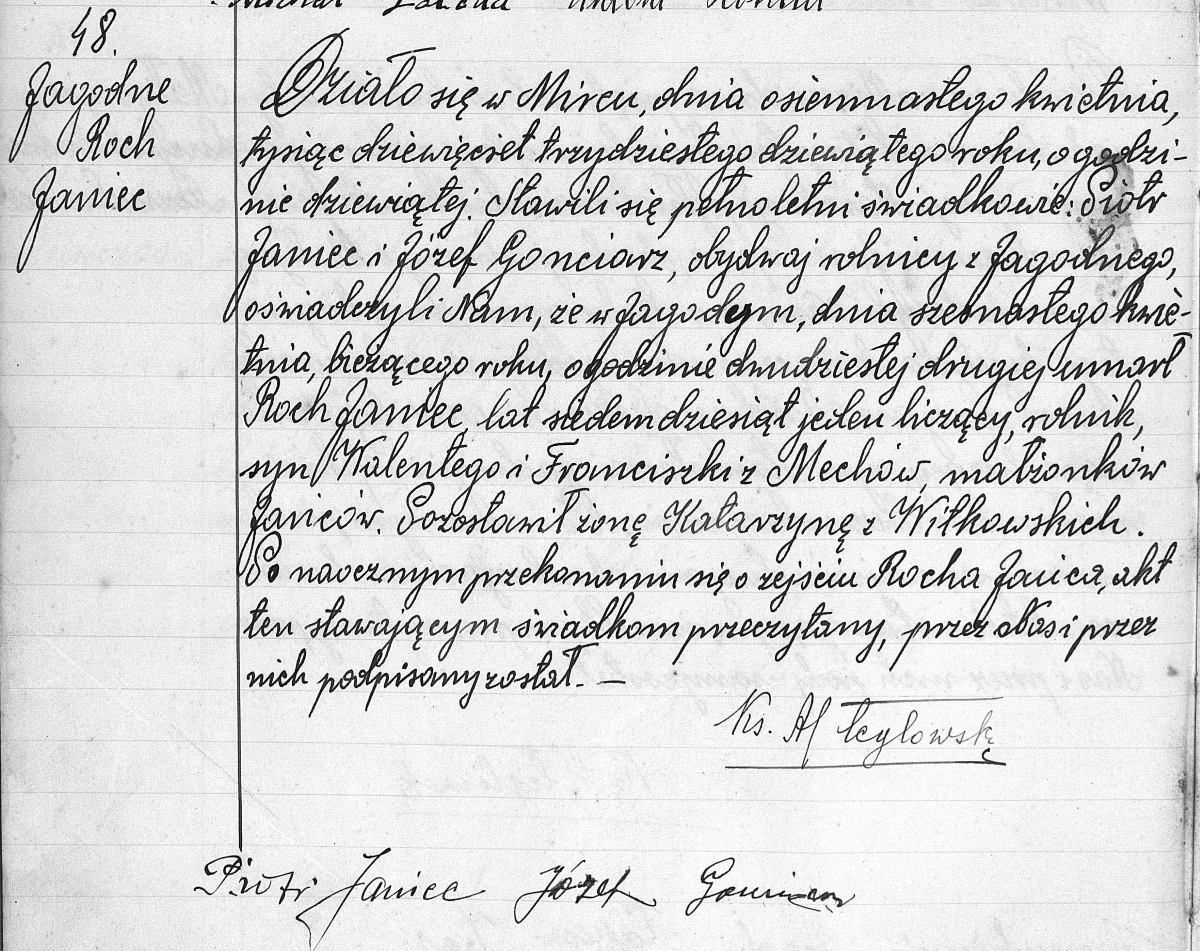 48.
Jagodne
Roch
Janiec
Działo się w Mircu, dnia osiemnastego kwietnia,
tysiąc dziewięćset trzydziestego dziewiątego roku, o godzi-
nie dziewiątej. Stawili się pełnoletni świadkowie: Piotr
Janiec i Józef Gonciarz, obydwaj rolnicy z Jagodnego,
oświadczyli Nam, że w Jagodnym, dnia szesnastego kwie-
tnia, bieżącego roku, o godzinie dwudziestej drugiej umarł
Roch Janiec, lat siedemdziesiąt jeden liczący, rolnik,
syn Walentego i Franciszki z Mechów, małżonków
Janców. Pozostawił żonę Katarzynę z Witkowskich.
Po naocznym przekonaniu się o zejściu Rocha Janca, akt
ten stawającym świadkom przeczytany, przez Nas i przez
nich podpisany został. —
Ks.
Piotr Janiec Józef Gonciarz